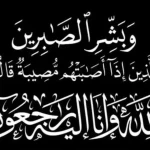 وَبَشِّرِ ٱلصَّٰبِرِينَ
لَّذِينَ إِذَآ أَصَٰبَتْهُم مُّصِيبَةٌ قَالُ
لله وإنا إليه راجعو